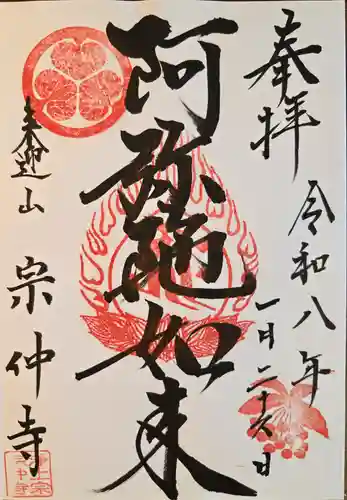 奉拝
令和八年
一月二十六日
阿弥陀如来
来迎山
宗仲寺